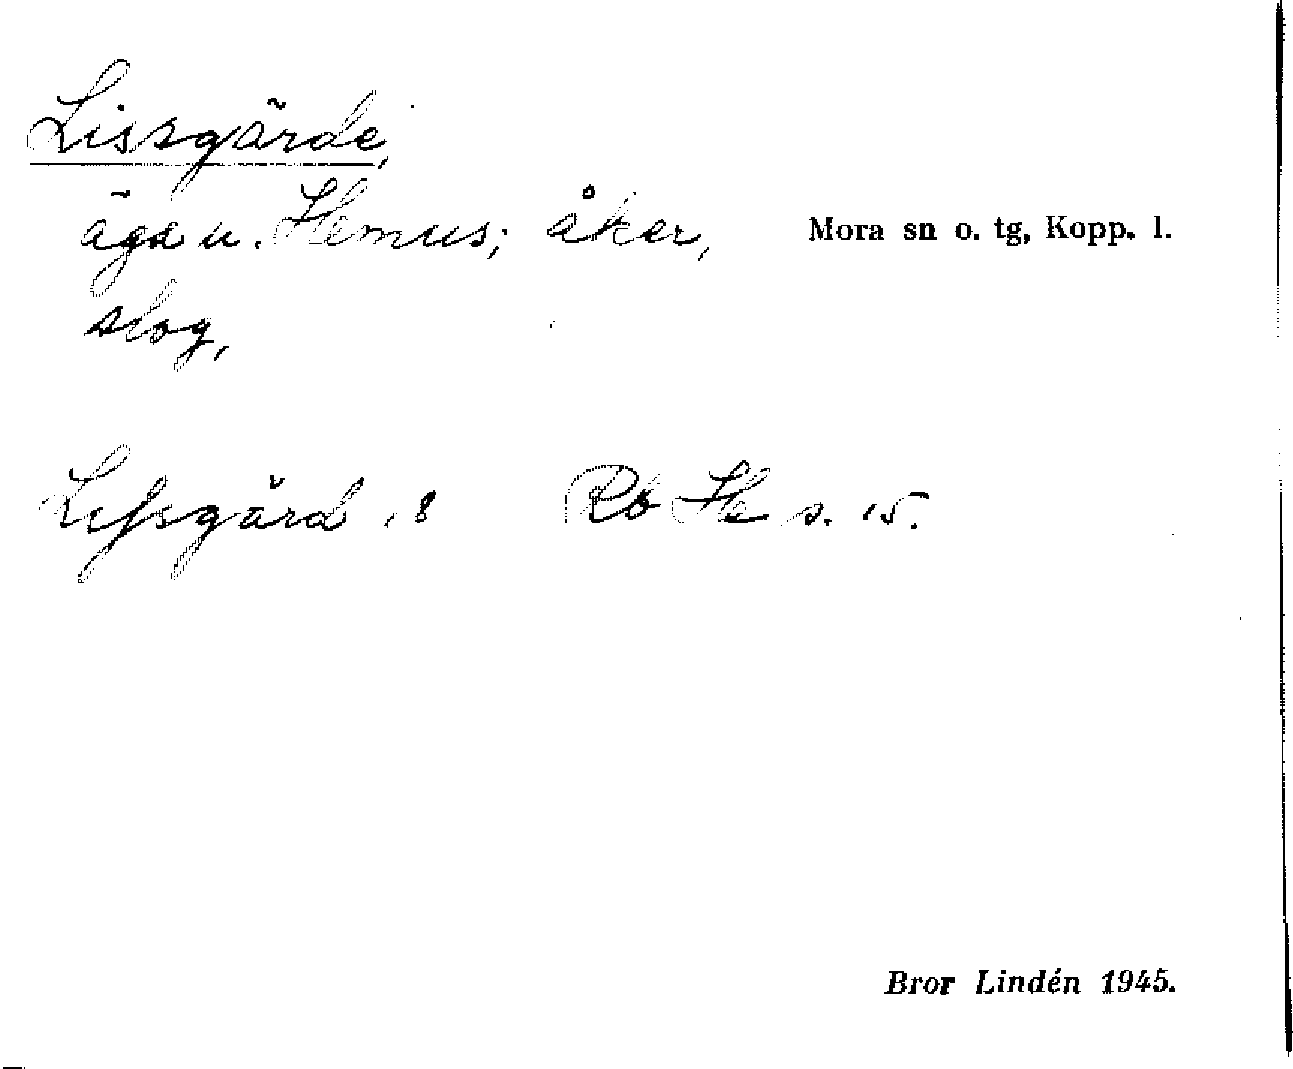 Lissgärde,
äga u. Hemus; åker, Mora sn o. tg, Kopp. l.
slog,
Lissgärd, 8 Rb He s. 15.
Bror Lindén 1945.